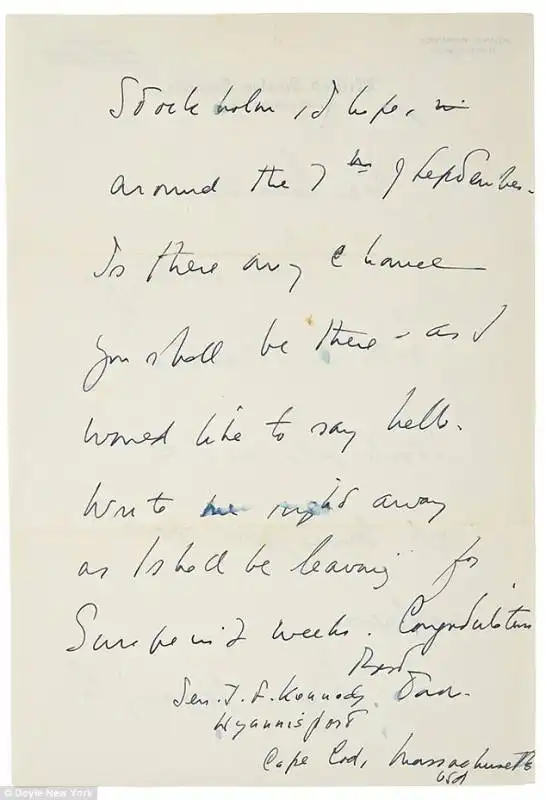 Stockholm, I hope, in
around the 7th of September.
Is there any chance
you shall be there - as I
would like to say hello.
Write me right away
as I shall be leaving for
Europe in 2 weeks. Congratulations
Best
Sen. J. F. Kennedy
Hyannisport
Cape Cod, Massachusetts
USA
© Doyle New York